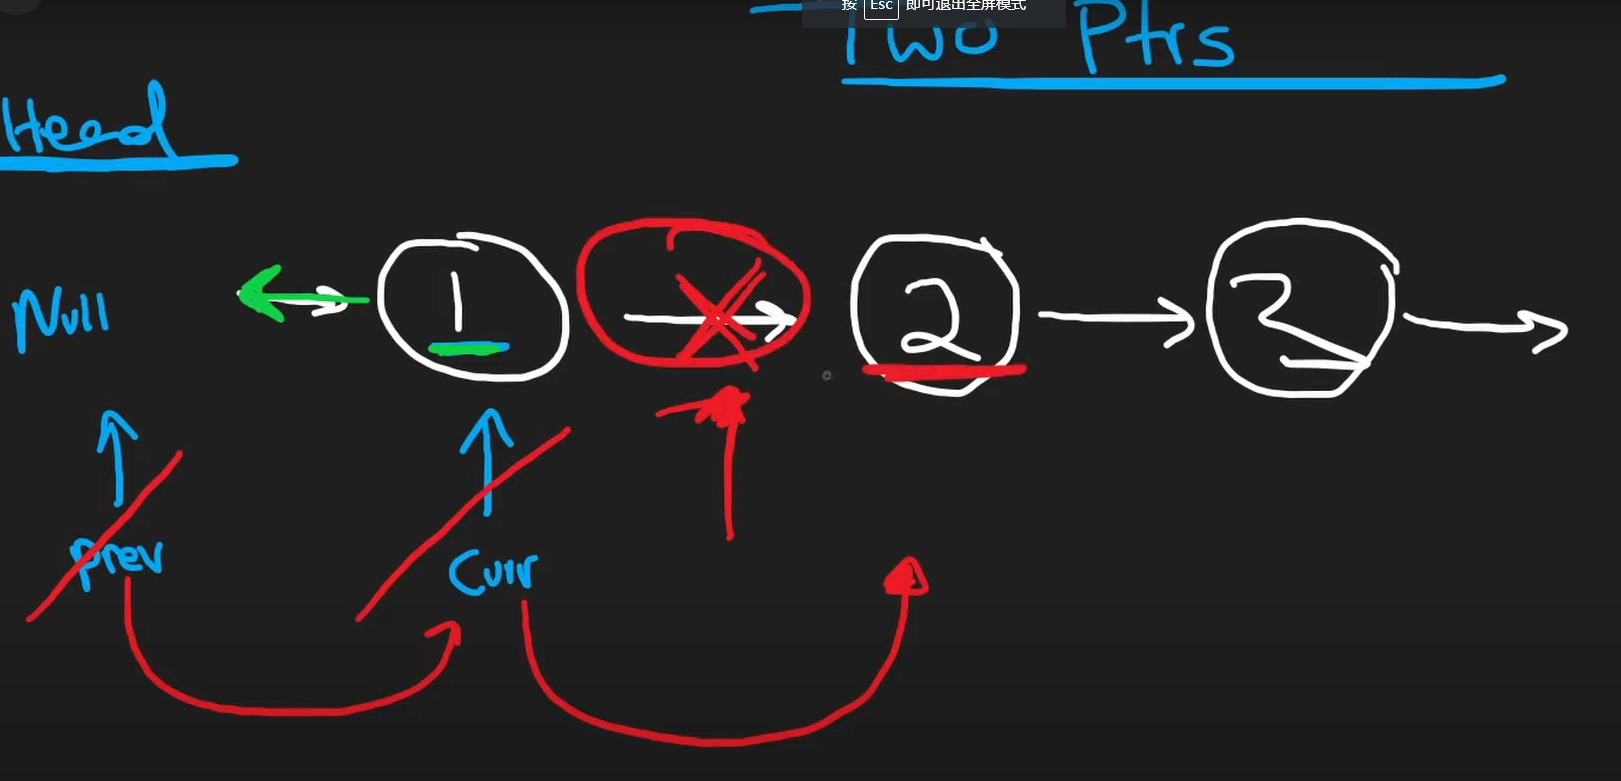 按 Esc 即可退出全屏模式
Two Ptrs
Head
Null
1
2
3
prev
Curr